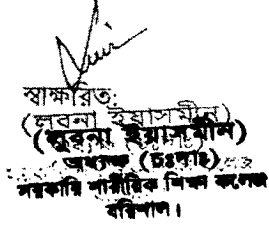 স্বাক্ষরিত:
(লুবনা ইয়াসমীন)
(লুবনা ইয়াসমীন)
অধ্যক্ষ (চঃদাঃ)
সরকারি শারীরিক শিক্ষা কলেজ
বরিশাল।